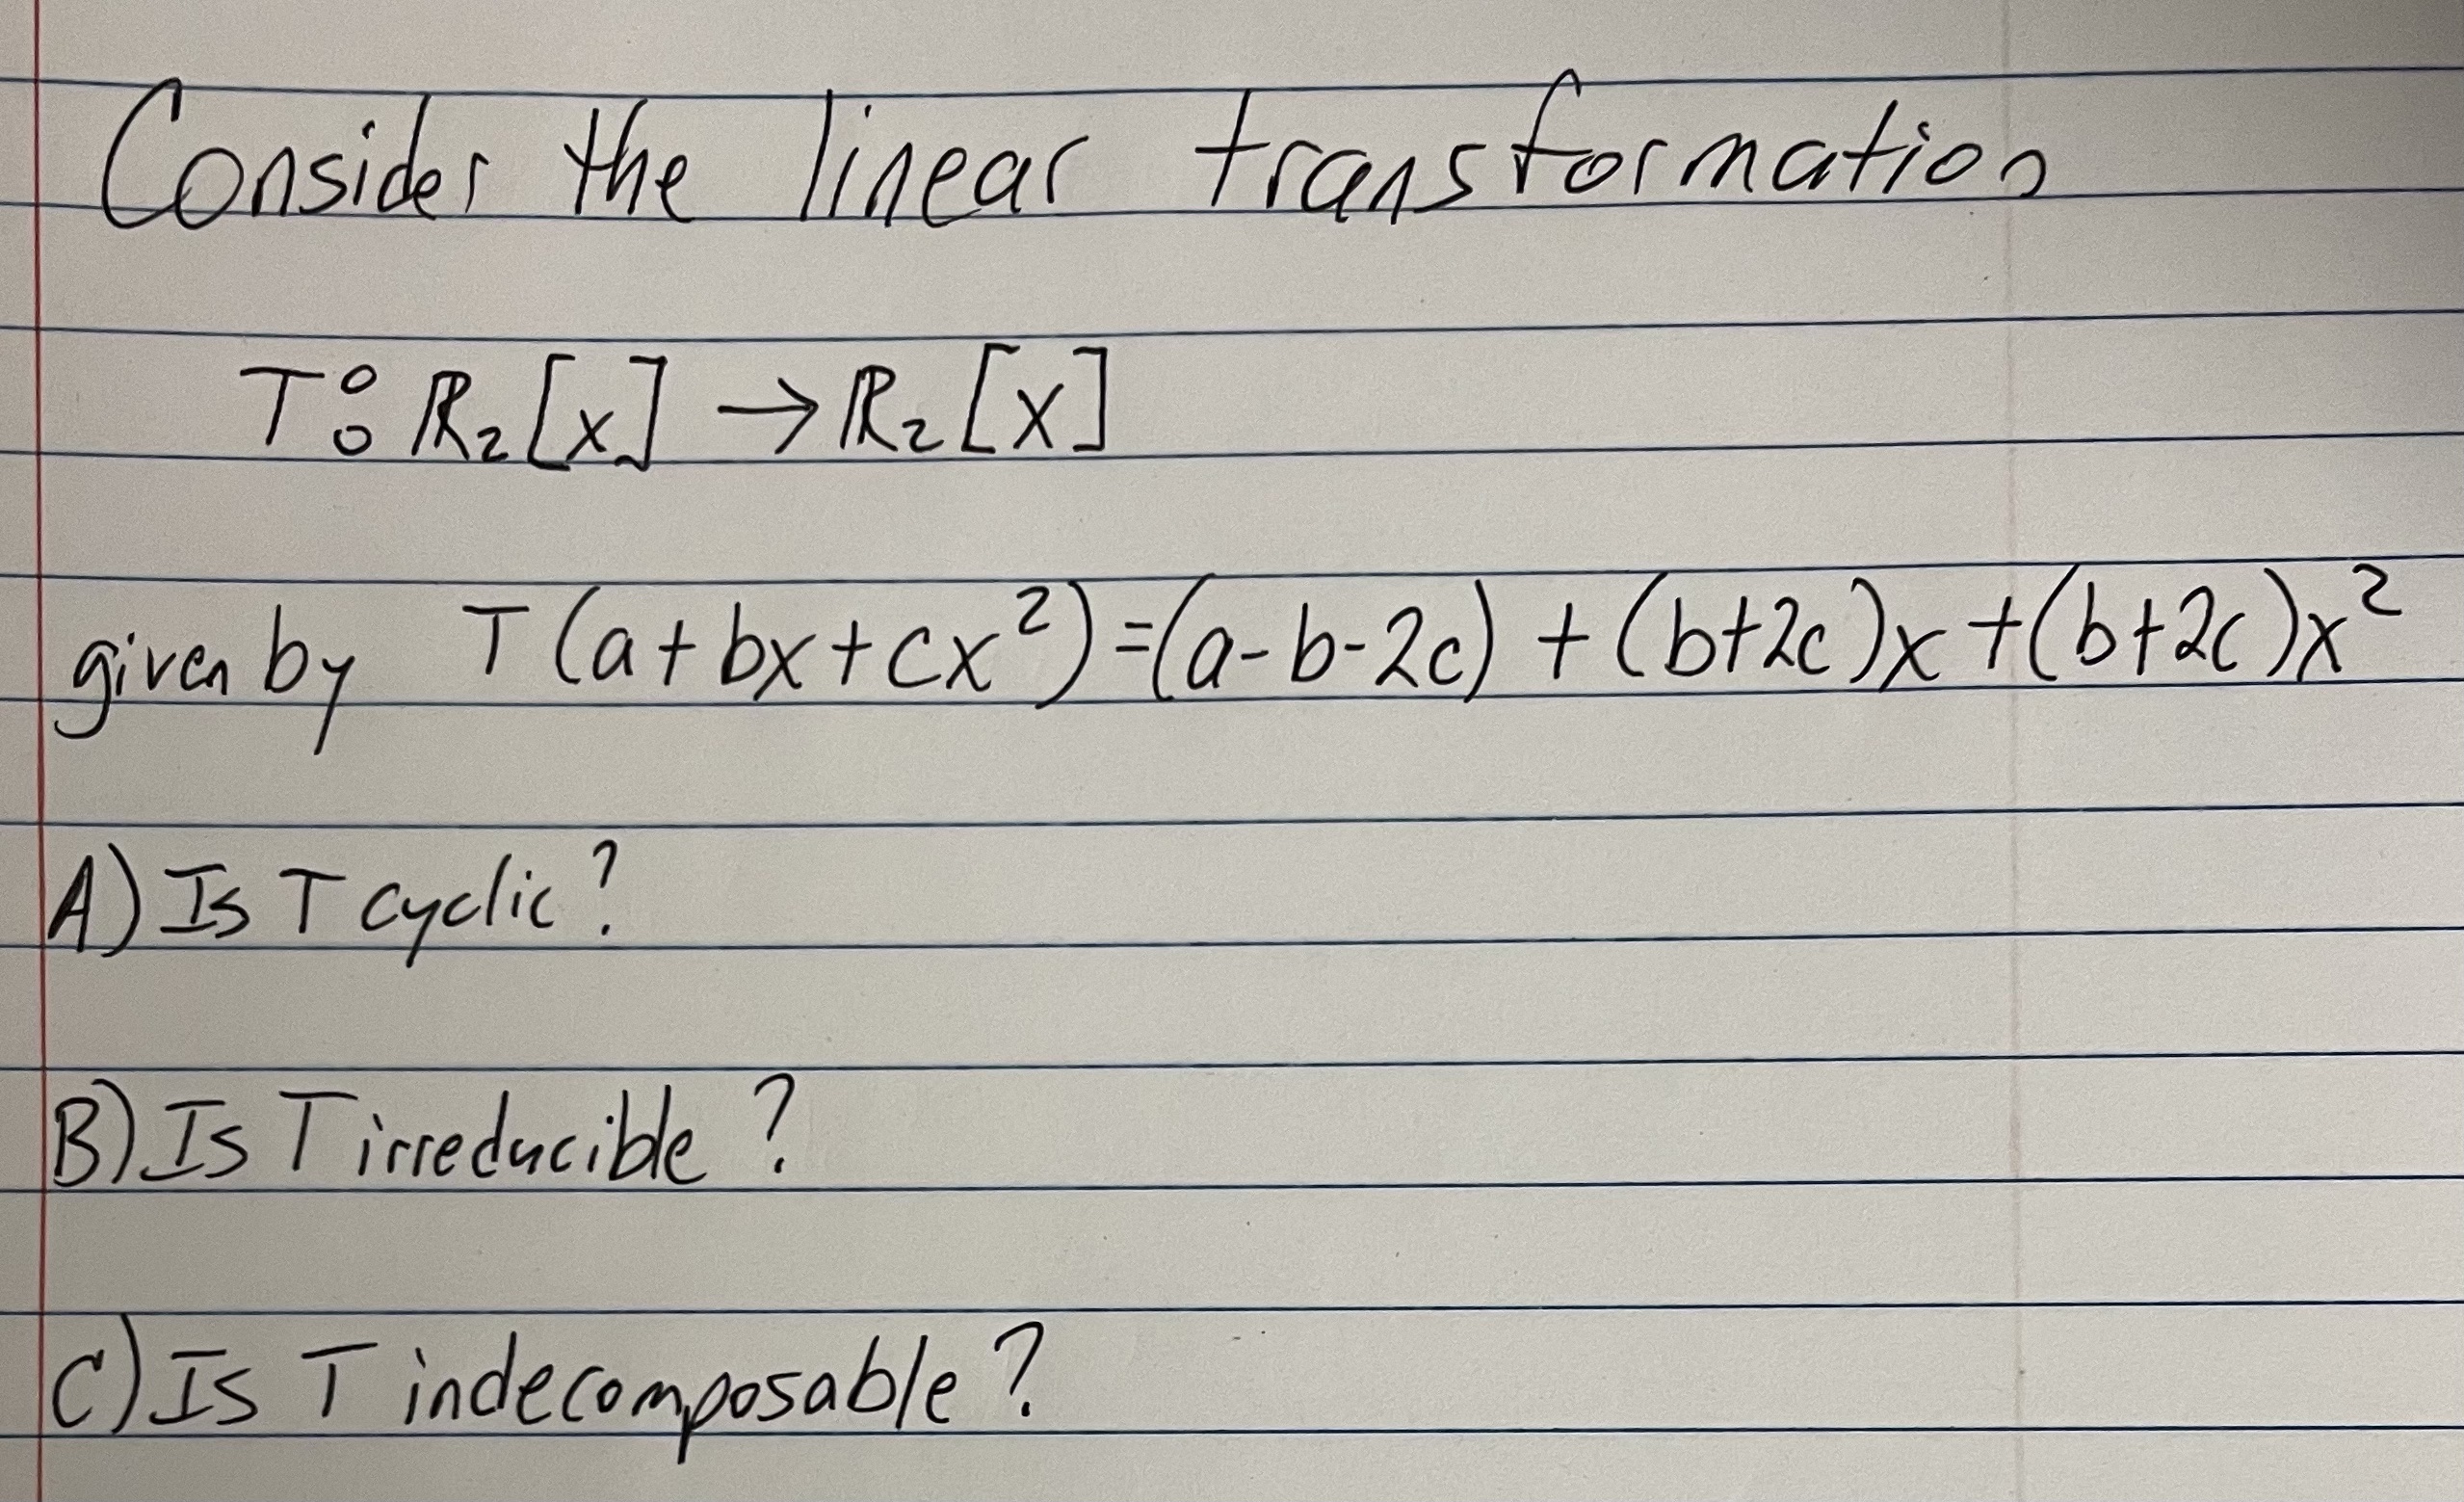 Consider the linear transformation
T: ℝ₂[x] → ℝ₂[x]
given by T(a+bx+cx²)=(a-b-2c) + (b+2c)x+(b+2c)x²
A) Is T cyclic?
B) Is T irreducible?
C) Is T indecomposable?